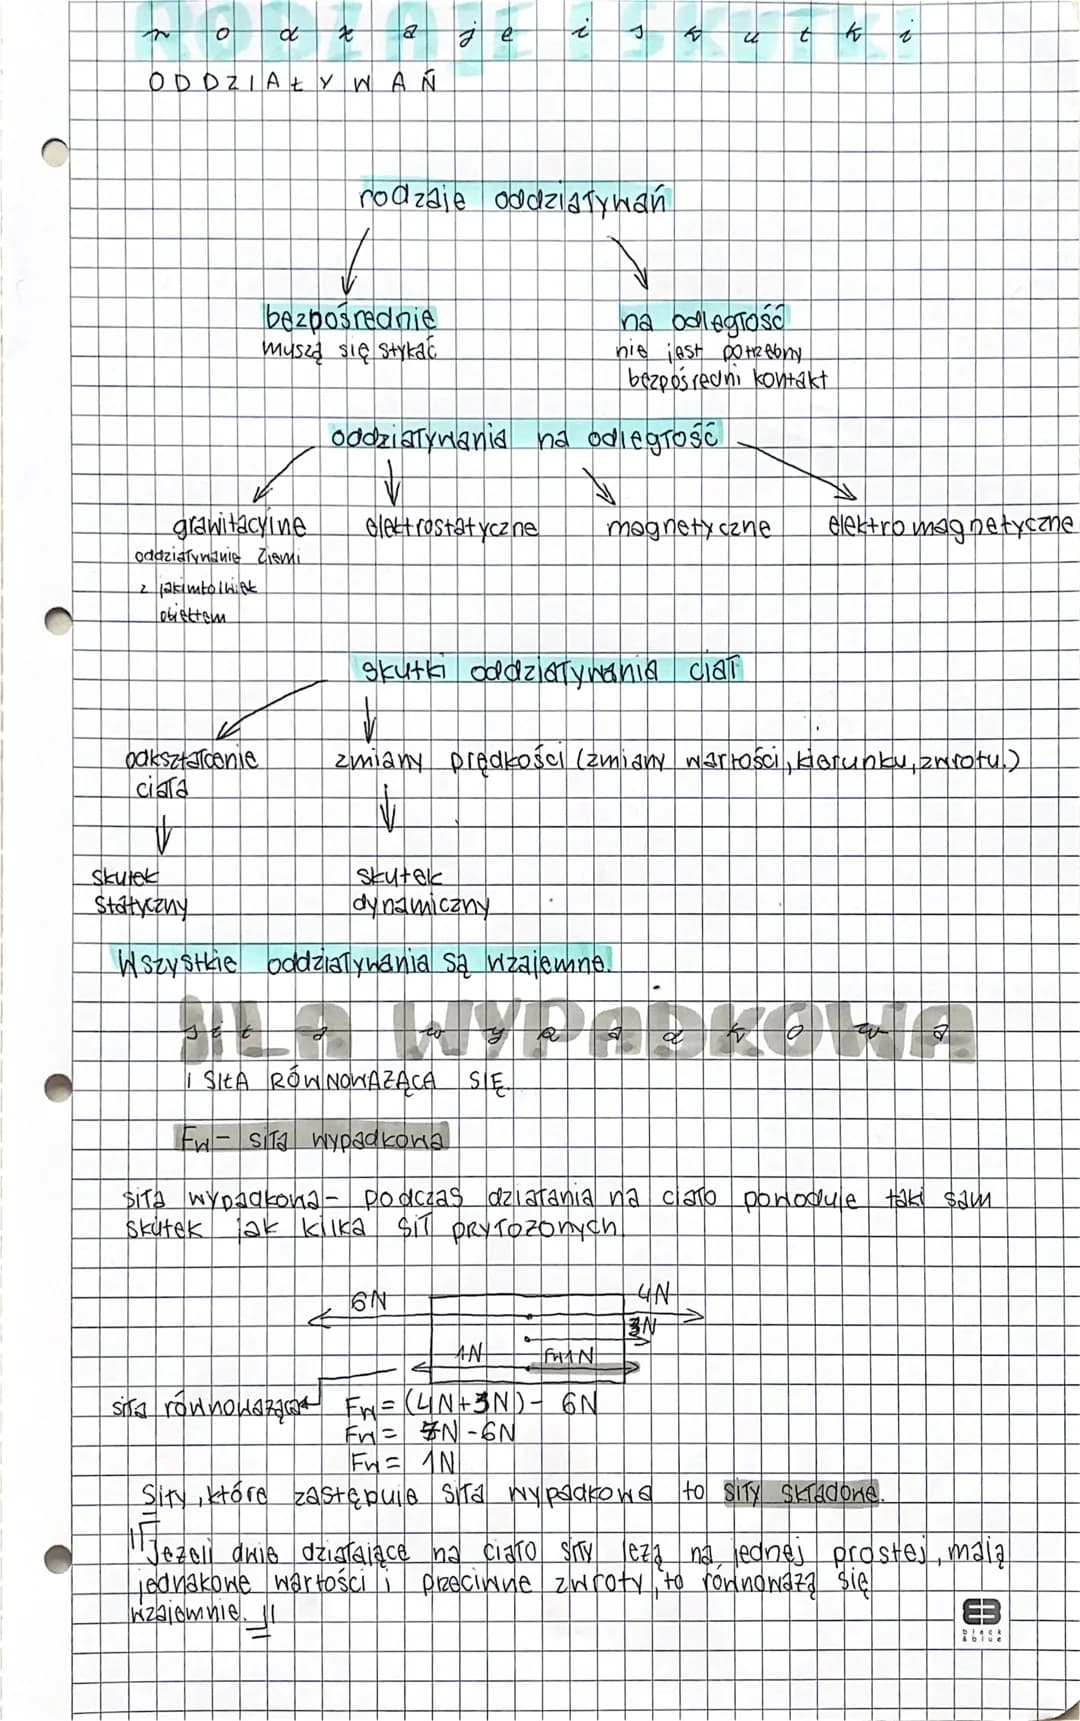 rodzaje i skutki
ODDZIAŁYWAŃ
rodzaje oddziaływań
bezpośrednie
muszą się stykać
na odległość
nie jest potrzebny
bezpośredni kontakt
oddziaływania na odległość
grawitacyjne
oddziaływanie Ziemi
z jakimkolwiek
obiektem
elektrostatyczne
magnetyczne
elektromagnetyczne
skutki oddziaływania ciał
odkształcenie
ciała
zmiany prędkości (zmiany wartości, kierunku, zwrotu.)
skutek
statyczny
skutek
dynamiczny
Wszystkie oddziaływania są wzajemne.
siła wypadkowa
I SIŁA RÓWNOWAŻĄCA SIĘ.
Fw - siła wypadkowa
siła wypadkowa - podczas działania na ciało powoduje taki sam
skutek jak kilka sił przyłożonych.
6N
4N
3N
1N
Fw1N
siła równoważąca
Fw = (4N+3N) - 6N
Fw = 7N - 6N
Fw = 1N
Siły, które zastępuje siła wypadkowa to siły składone.
"Jeżeli dwie działające na ciało siły leżą na jednej prostej, mają
jednakowe wartości i przeciwne zwroty, to równoważą się
wzajemnie."
black
&blue